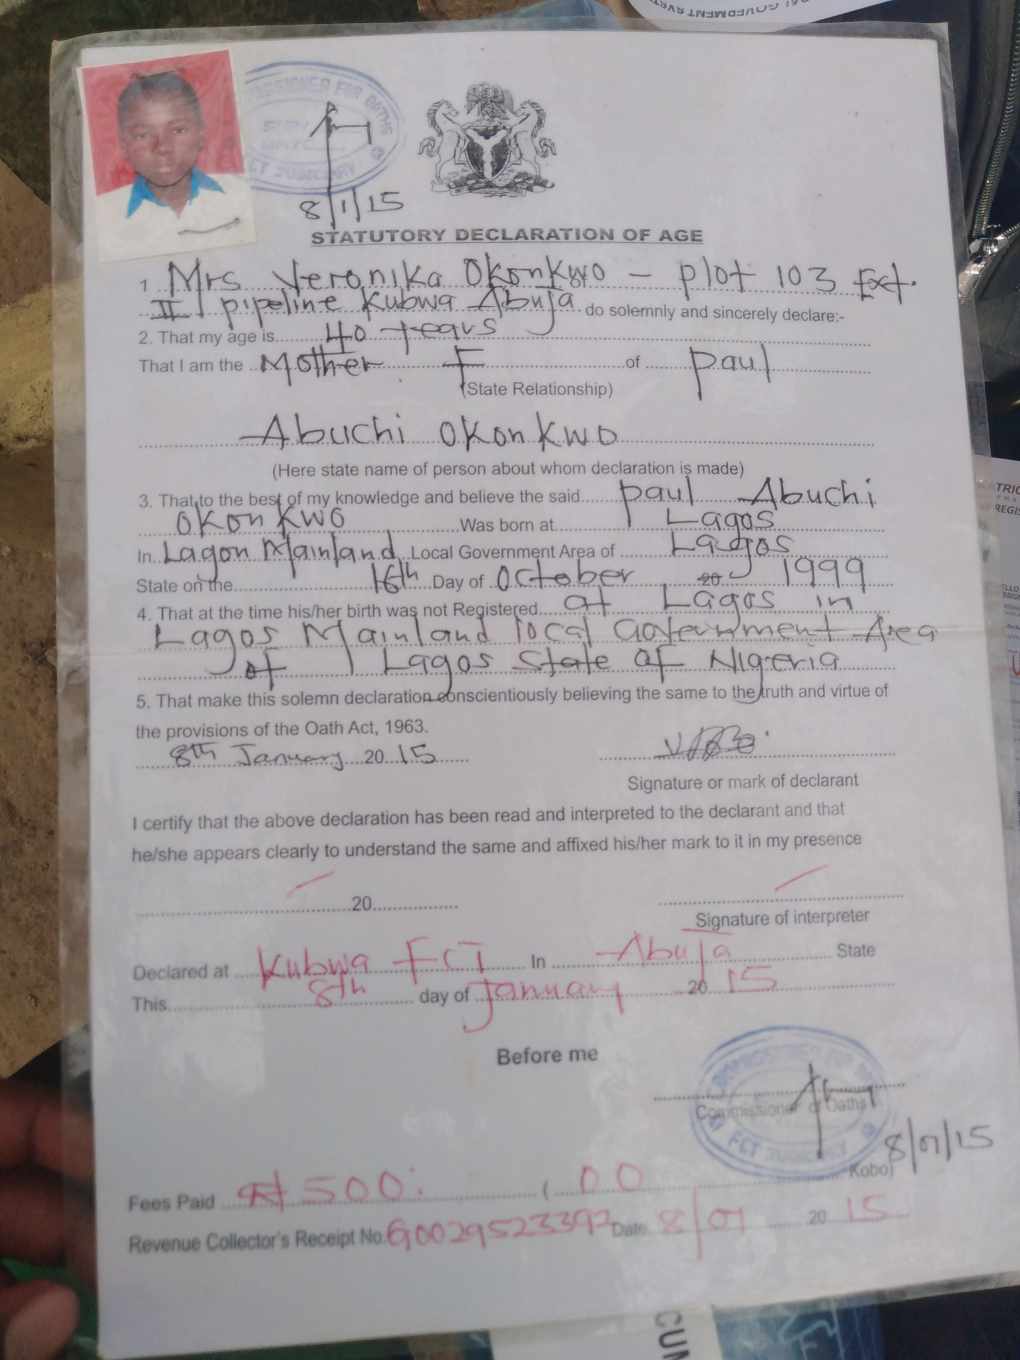 COMMISSIONER FOR OATHS
FCT JUDICIARY
8/1/15
STATUTORY DECLARATION OF AGE
1 Mrs Veronika Okonkwo - Plot 103 Ext.
II pipeline Kubwa Abuja do solemnly and sincerely declare:-
2. That my age is 40 years
That I am the Mother of Paul
(State Relationship)
Abuchi Okonkwo
(Here state name of person about whom declaration is made)
3. That to the best of my knowledge and believe the said Paul Abuchi
Okonkwo Was born at Lagos
In Lagon Mainland Local Government Area of Lagos
State on the 16th Day of October 20 1999
4. That at the time his/her birth was not Registered at Lagos in
Lagos Mainland local Government Area
of Lagos State of Nigeria
5. That make this solemn declaration conscientiously believing the same to the truth and virtue of
the provisions of the Oath Act, 1963.
8th January 2015
Signature or mark of declarant
I certify that the above declaration has been read and interpreted to the declarant and that
he/she appears clearly to understand the same and affixed his/her mark to it in my presence
20
Signature of interpreter
Declared at Kubwa FCT In Abuja State
This 8th day of January 2015
Before me
Commissioner of Oaths
COMMISSIONER FOR OATHS
FCT JUDICIARY
8/01/15
Fees Paid ₦500: 00 Kobo
Revenue Collector's Receipt No. G0029523392 Date 8/01 2015